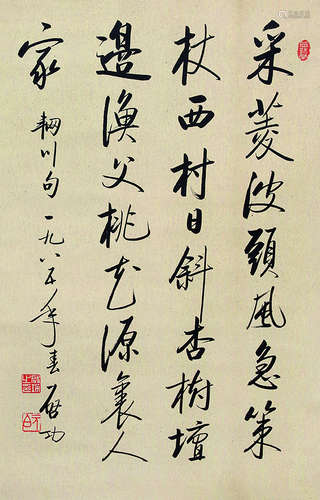 采菱波頭風急策
杖西村日斜杏樹壇
邊漁父桃花源裏人
家
輞川句一九八年春啓功